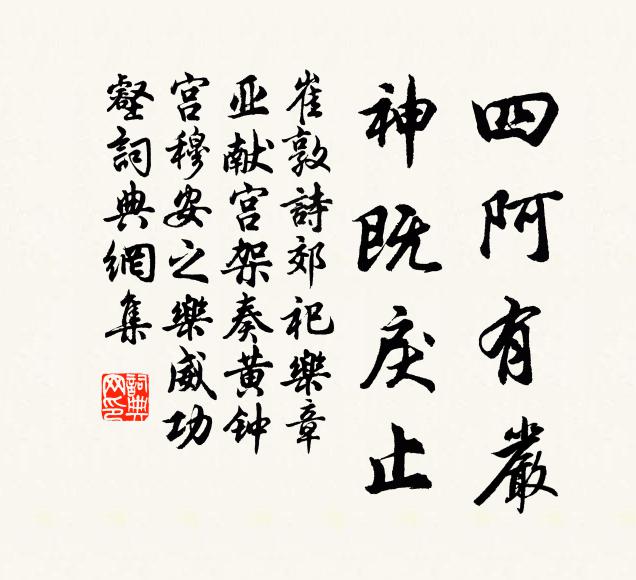 四阿有嚴
神既戾止
崔敦詩郊祀樂章
亚献宫架奏黄钟
宫穆安之樂威功
壑詞典網集
詞典网印